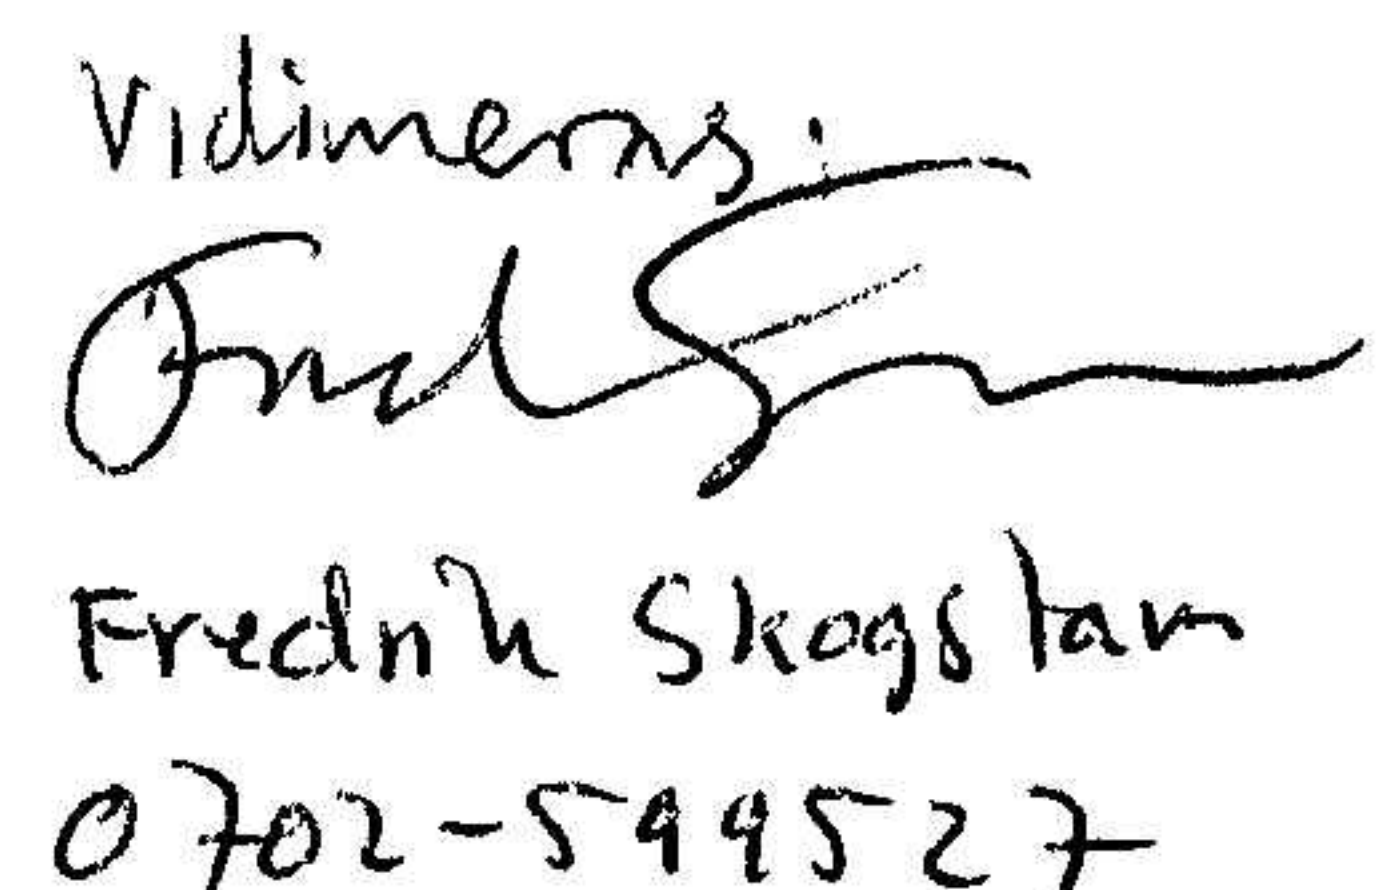 Vidimeras:
Fredrik Skogstam
0702-599527